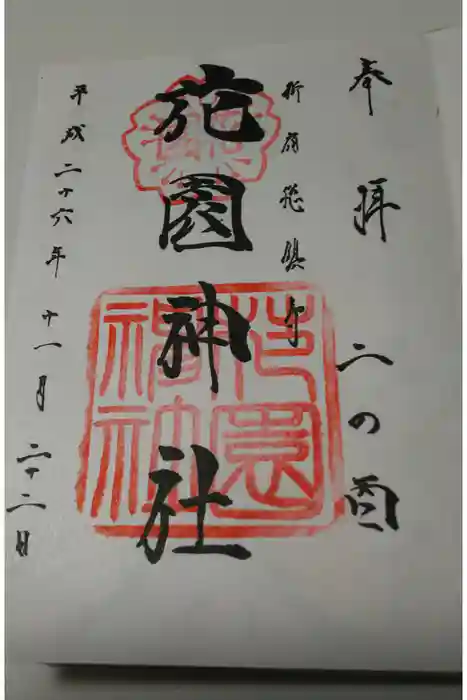 奉拝 二の酉
新宿総鎮守
花園神社
平成二十六年十一月二十二日
花園
神社